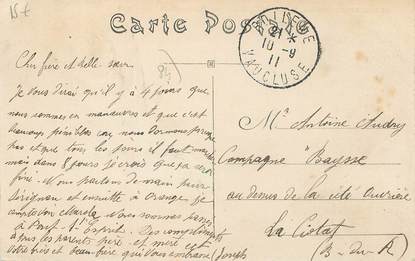 15€
Carte Postale
BOLLÈNE
21 *
10 - 9
11
VAUCLUSE
84
Cher frère et belle sœur
Je vous dirai qu'il y a 4 jours que
nous sommes en manœuvres et que c'est
beaucoup pénible car nous dormons presque
pas et que tous les jours il faut marcher
mais dans 8 jours je crois que ça sera
fini. Nous partons demain pour
Sérignan et ensuite à Orange, je
Mardi. Nous sommes passés
à Pont-St Esprit. Des compliments
à tous les parents père et mère et
votre frère et beau-frère qui vous embrasse Joseph
Mr Antoine Audry
Campagne "Baysse
au dessus de la cité ouvrière
La Ciotat
(B-du-R)